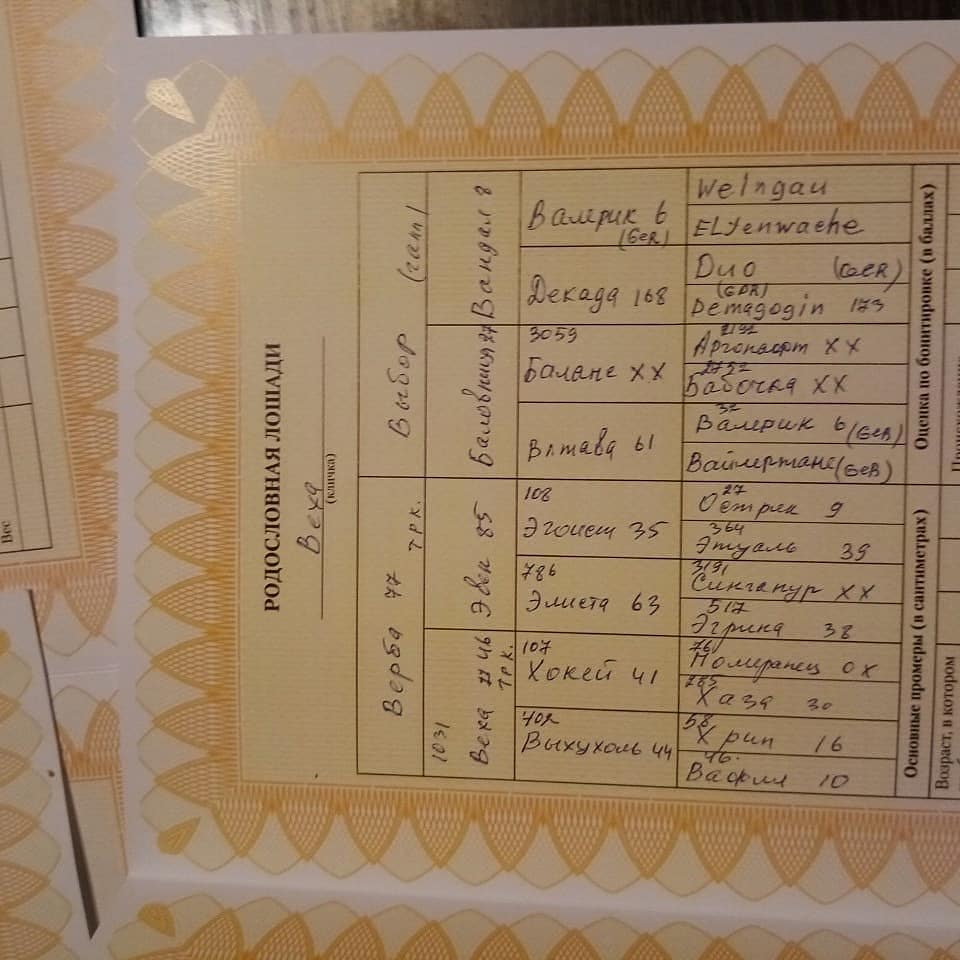 РОДОСЛОВНАЯ ЛОШАДИ
Веха
(кличка)
Выбор (ганн)
Вандал 8
Валерик 6
(GER)
Weingau
Eltenwache
Декада 168
Дио (GER)
(GDR)
Demagogin 173
Баловница 27
3059
Баланс XX
2192
Аргонавт XX
2752
Бабочка XX
Влтава 61
32
Валерик 6 (GER)
Ваймертане (GER)
Верба 77 трк.
Эвен 85
108
Эгоист 35
27
Острик 9
364
Этуаль 39
786
Элиста 63
3191
Сингапур XX
517
Эгрина 38
1031
Веха 46
трк.
107
Хокей 41
76
Померанец OX
265
Хаза 30
402
Выхухоль 44
58
Хрип 16
46.
Вафля 10
Оценка по бонитировке (в баллах)
Основные промеры (в сантиметрах)
Возраст, в котором
Вес